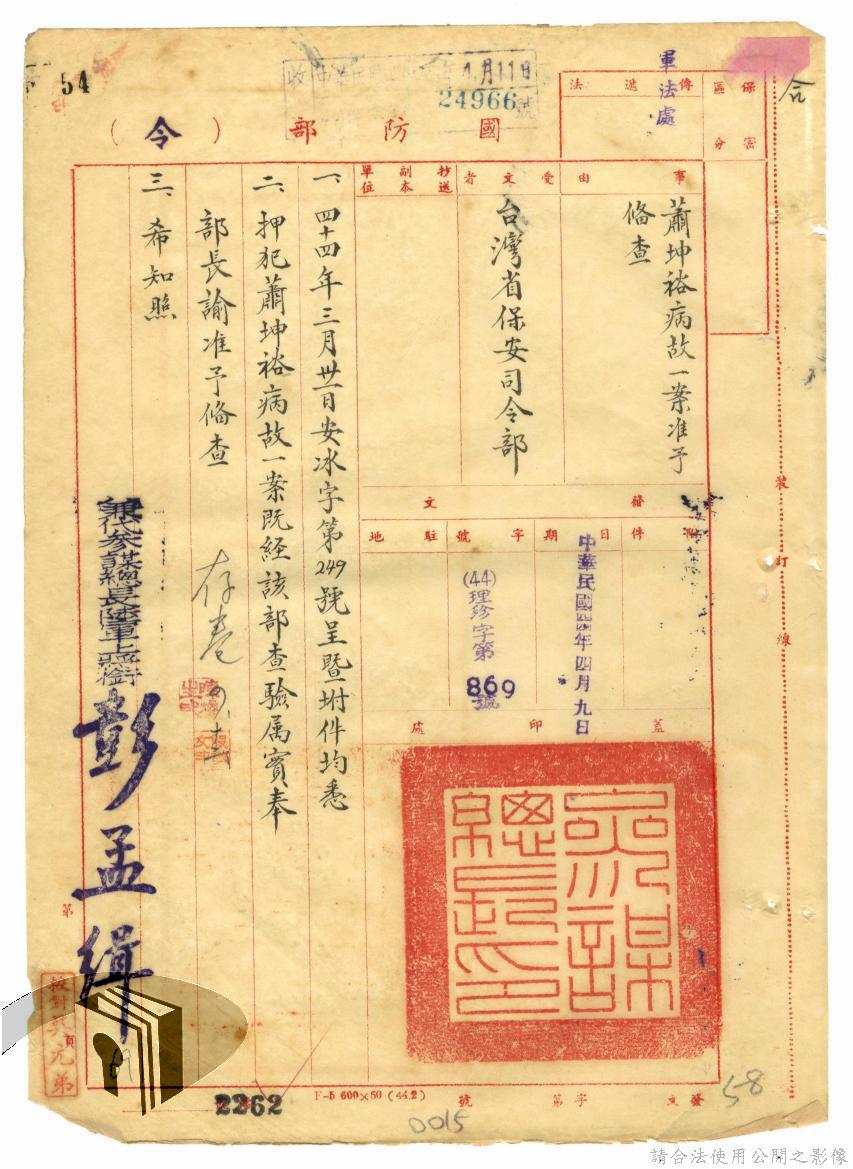 54
4月11日
24966號
軍法處
法遞傳
保密
區分
合
國防部(令)
事由
蕭坤裕病故一案准予
備查
受文者
台灣省保安司令部
抄送
副本
單位
一、四十四年三月卅一日安冰字第249號呈暨坿件均悉
二、押犯蕭坤裕病故一案既經該部查驗属實奉
部長諭准予備查
三、希知照
發文
附件
日期
中華民國四四年四月九日
字號
(44)理珍字第869號
駐地
蓋印處
參謀總長印
存卷
兼代參謀總長陸軍上將銜
彭孟緝
裝訂線
第
校對
2262
F-5 600×50 (44.2)
發文 字第 號
58
0015
請合法使用公開之影像